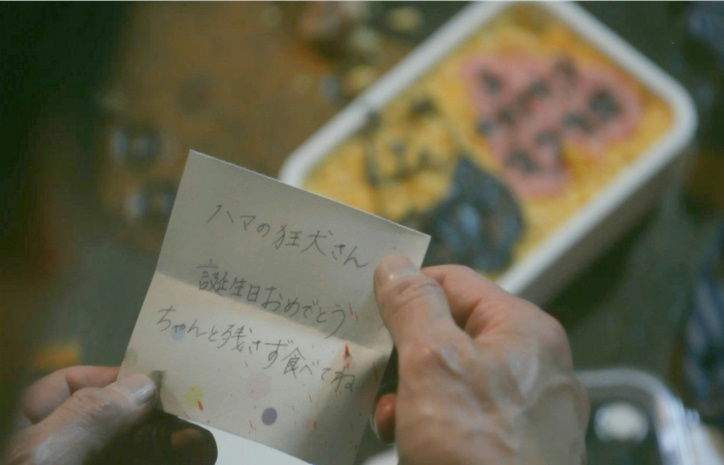 ハマの狂犬さん
誕生日おめでとう
ちゃんと残さず食べてね